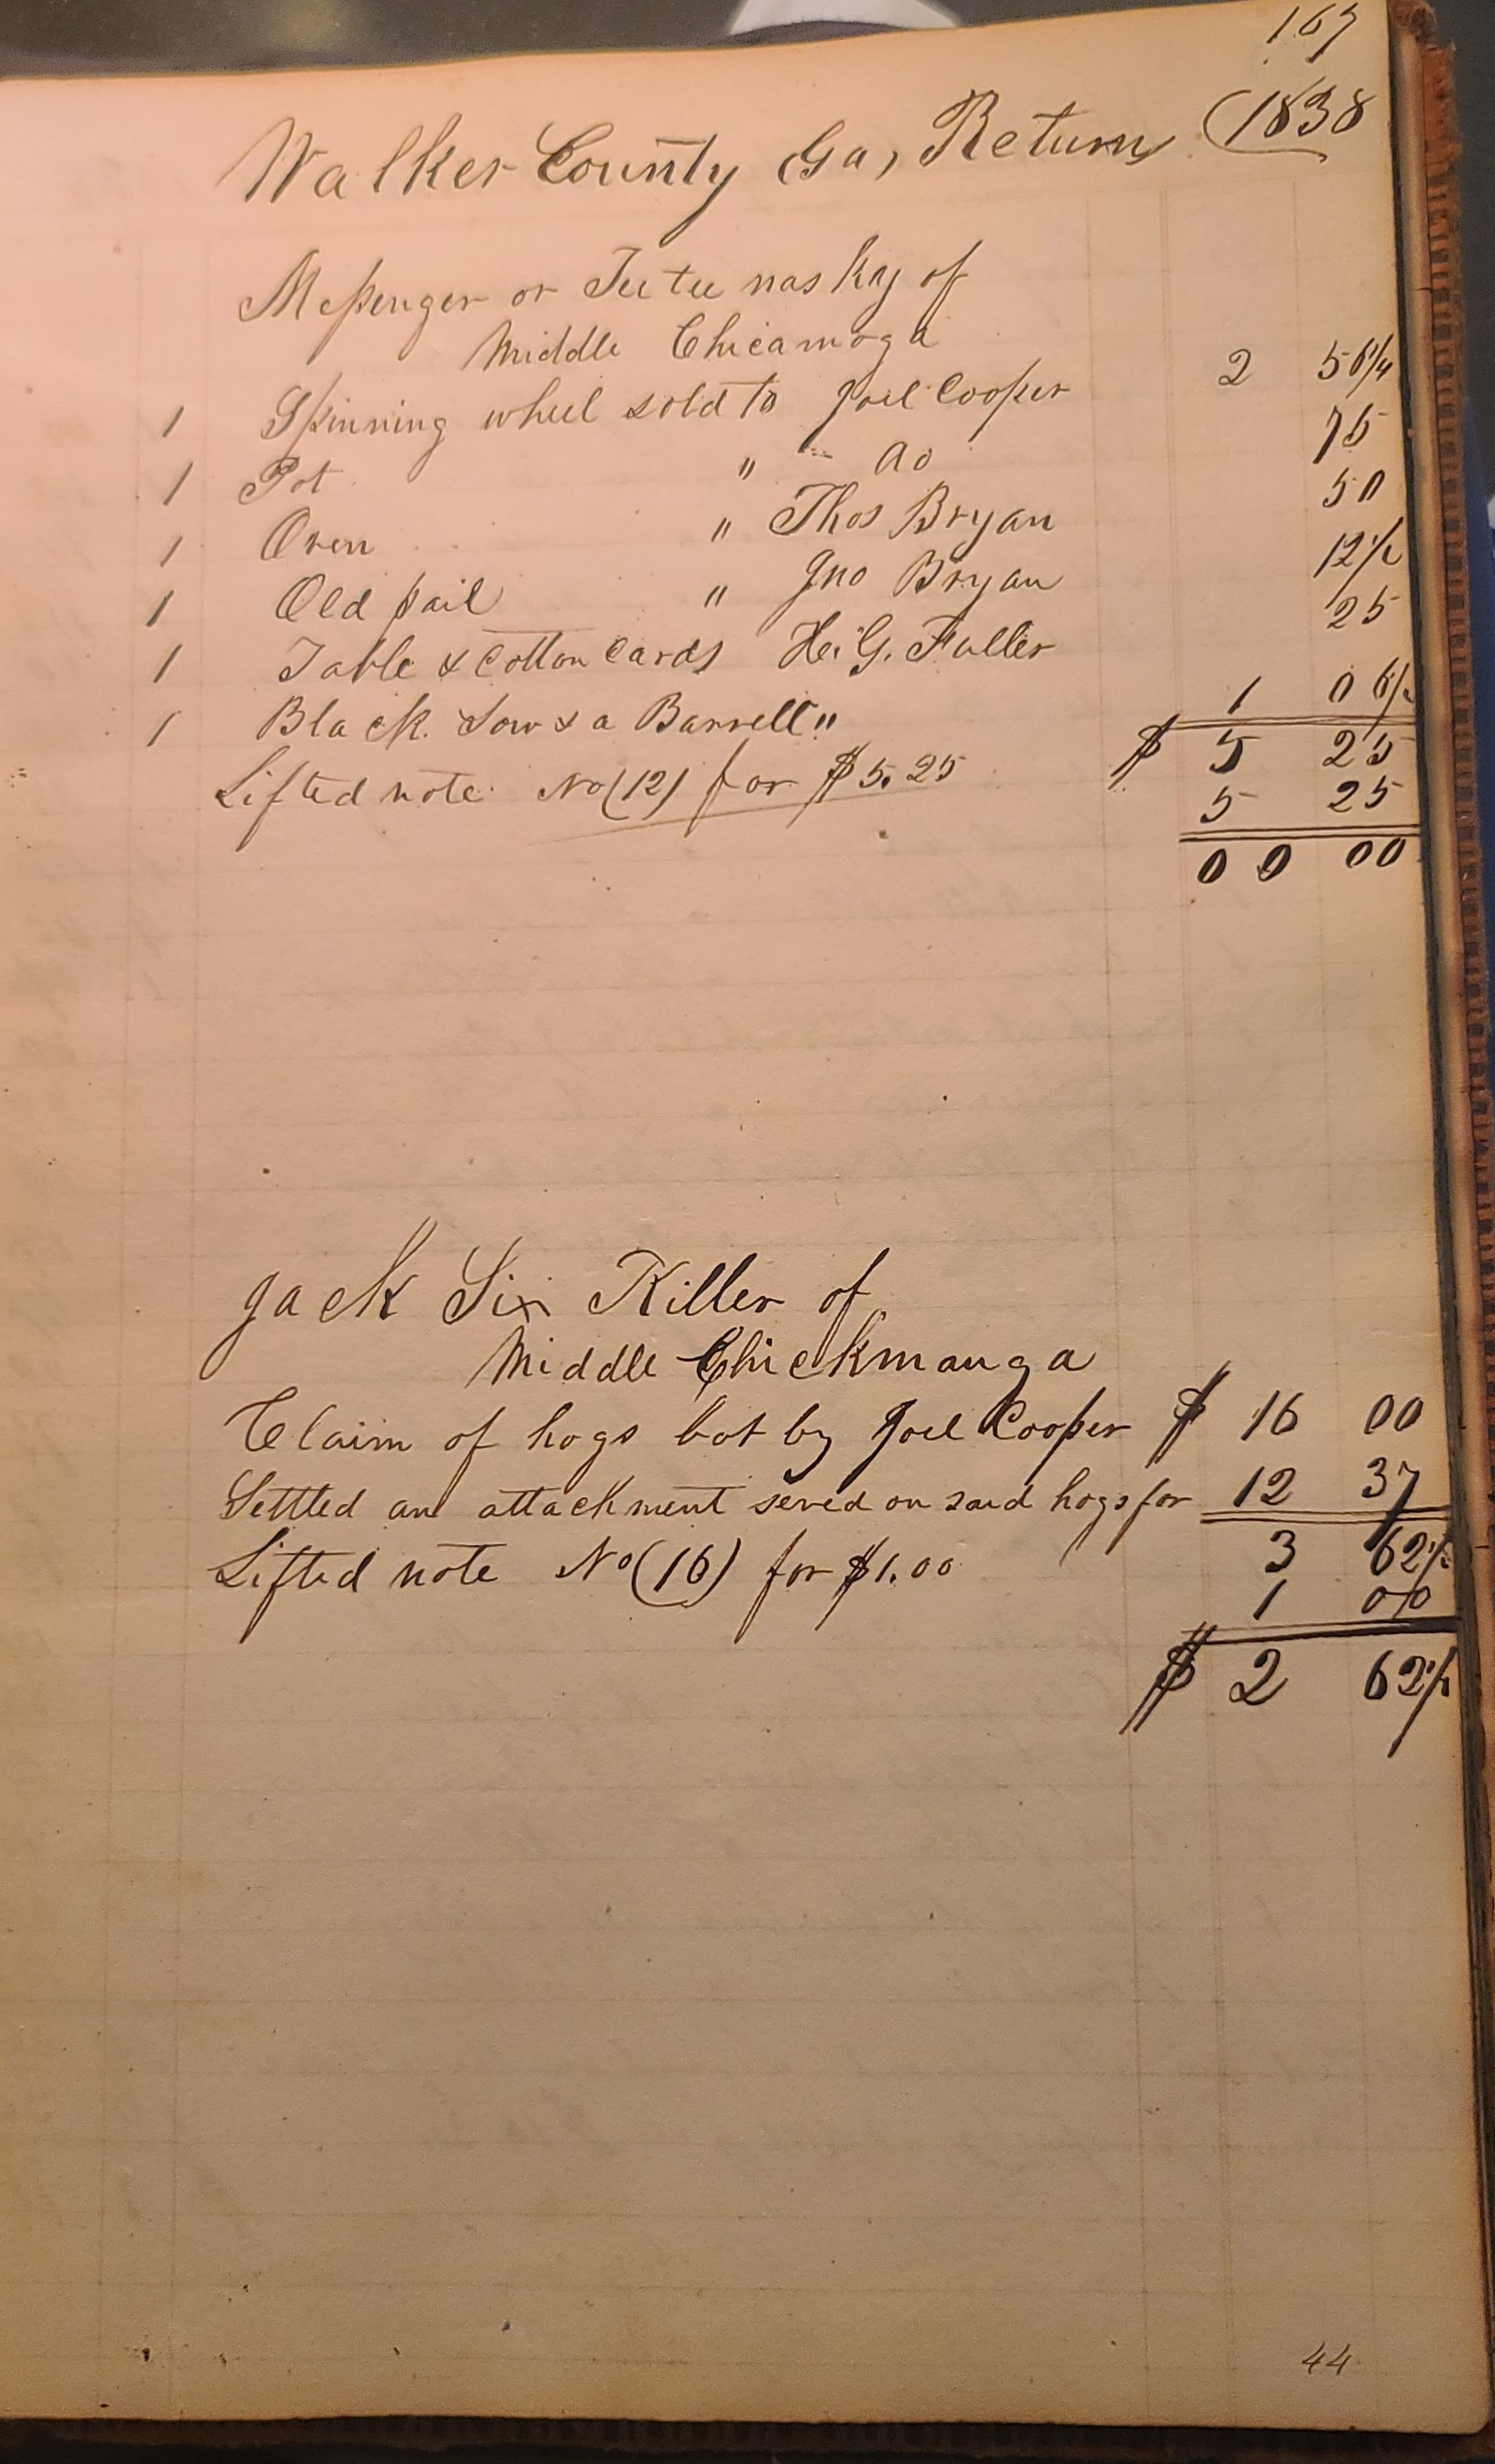 167
Walker County Ga, Return (1838
Messenger or Tee tee nas Ky of
Middle Chicamoga
1 Spinning wheel sold to Joel Cooper 2 56 1/4
1 Pot " " do 75
1 Oven " Thos Bryan 50
1 Old pail " Jno Bryan 12 1/2
1 Table & Cotton Cards H. G. Fuller 25
1 Black Sow & a Barrell " 1 06 1/2
Lifted note No (12) for $5.25 $ 5 25
5 25
00 00
Jack Six Killer of
Middle Chickmauga
Claim of hogs bot by Joel Cooper $ 16 00
Settled an attackment served on said hogs for 12 37
3 62 1/2
Lifted note No (16) for $1.00 1 00
$ 2 62 1/2
44